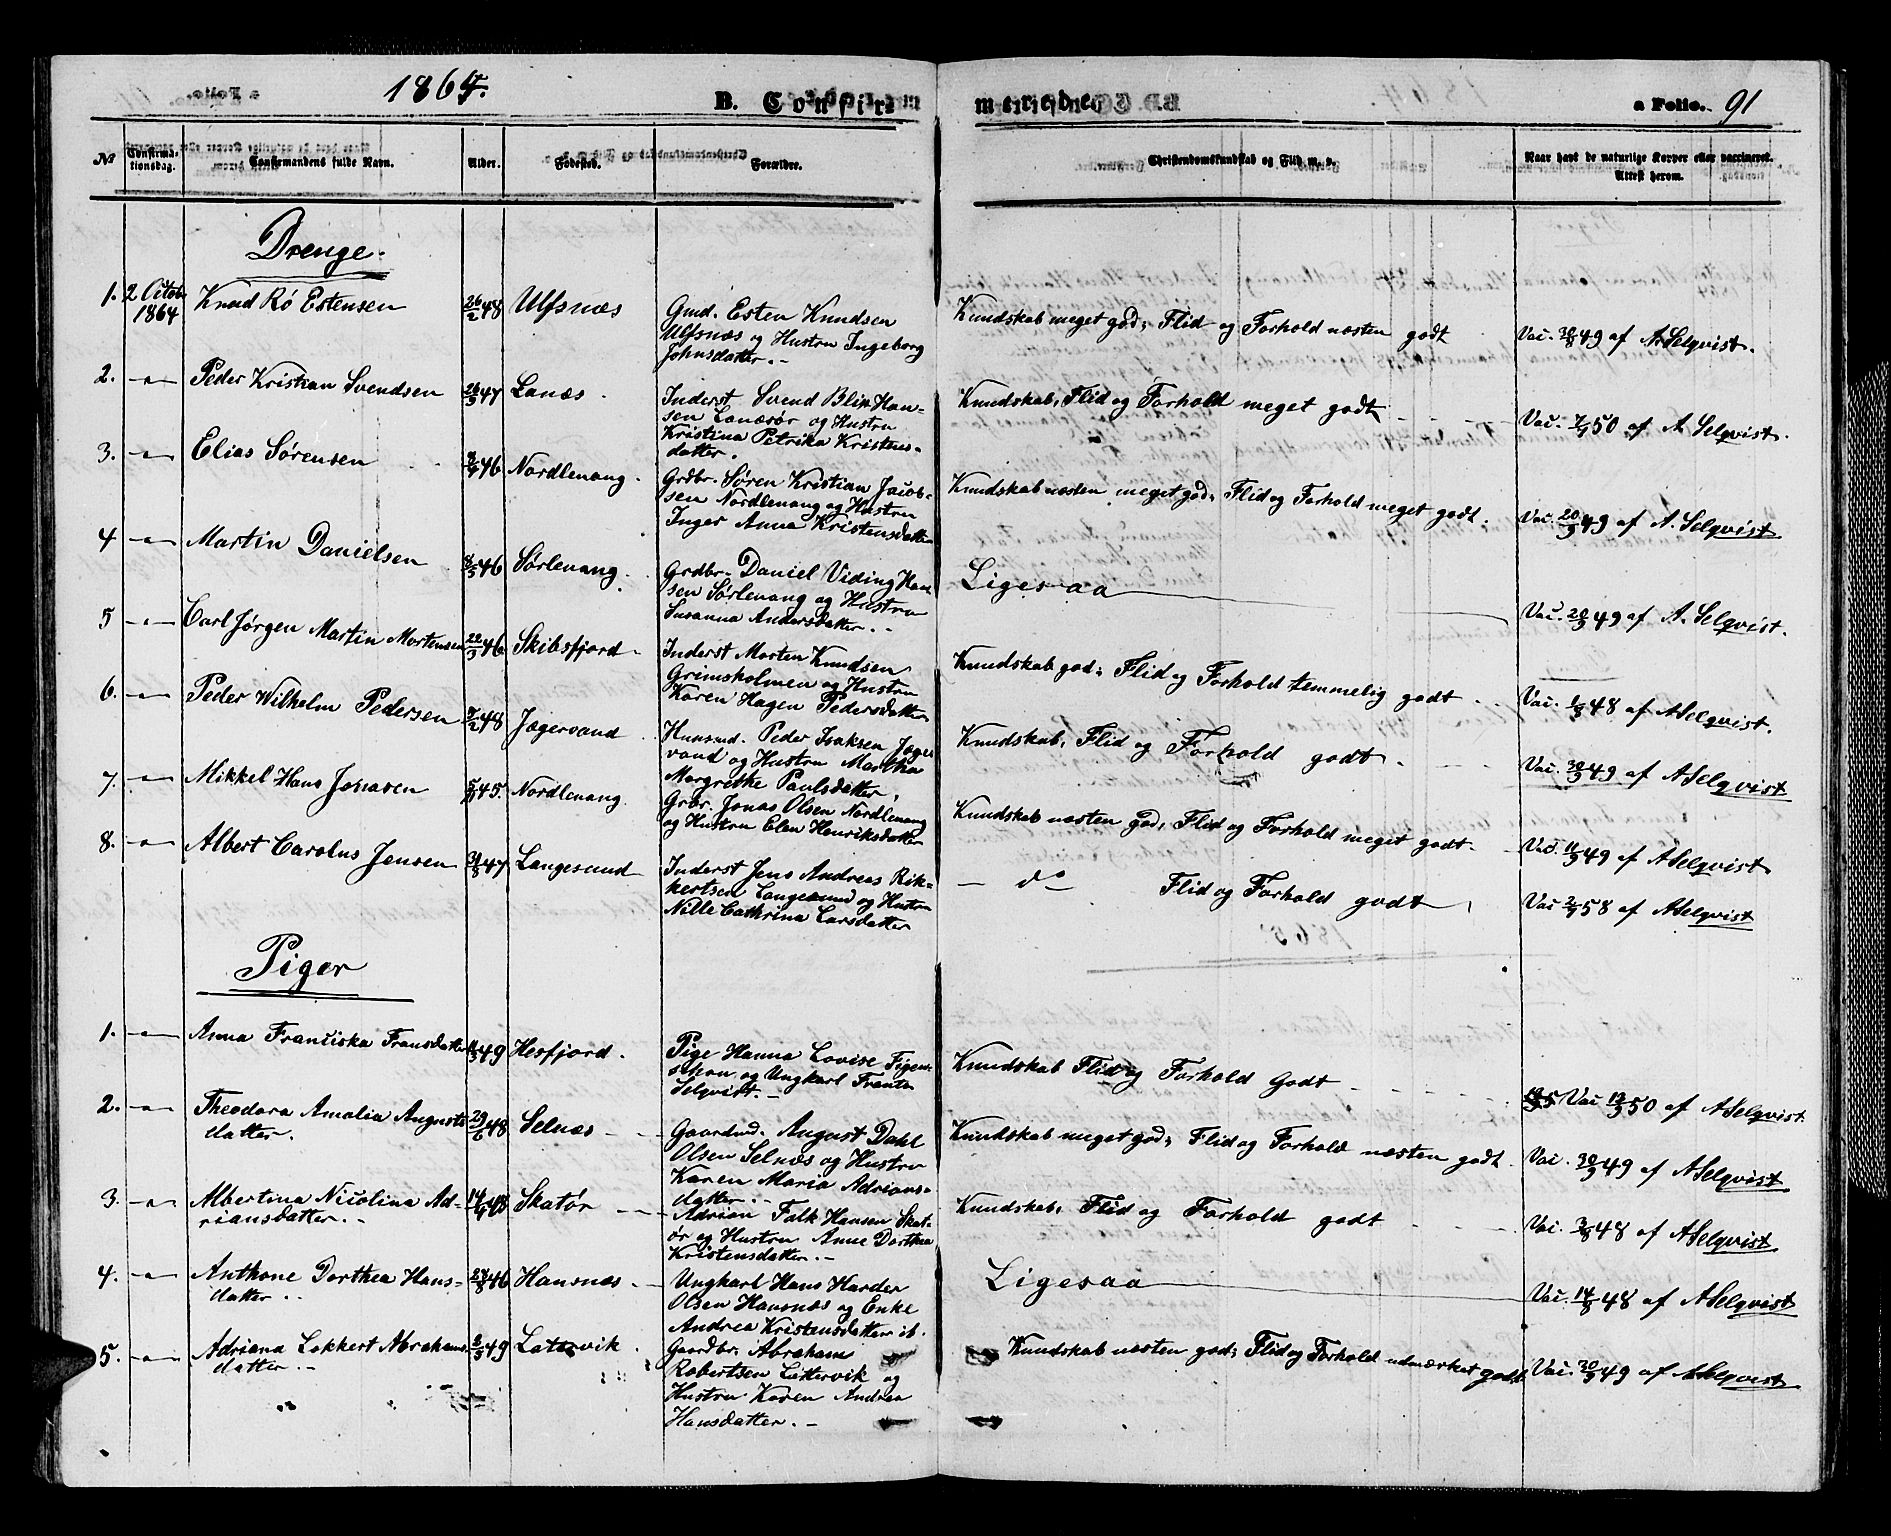 1864.
B. Confirmerede.
a Folio. 91
No
Confirmationsdag.
Confirmandens fulde Navn.
Alder.
Fødested.
Forældre.
Christendomskundskab og Flid m. v.
Naar havt de naturlige Kopper eller vaccineret. Attest herom.
Drenge.
1. 2 Octob. 1864 Knud Rø Estensen 26/2 48 Ulfsnæs
Gmd. Esten Knudsen
Ulfsnæs og Hustru Ingeborg
Johnsdatter. -
Kundskab meget god; Flid og Forhold næsten godt
Vac. 30/8 49 af A. Selqvist.
2. -"- Peder Kristian Svendsen 26/3 47 Lanæs.
Inderst Svend Blix Han-
sen Lanæsør og Hustru
Kristina Petrika Kristens-
datter.
Kundskab, Flid og Forhold meget godt
Vac. 7/7 50 af A. Selqvist.
3. -"- Elias Sørensen 46 Nordlenang.
Grdbr. Søren Kristian Jacob-
sen Nordlenang og Hustru
Inger Anna Kristensdatter
Kundskab næsten meget god; Flid og Forhold meget godt.
Vac. 20/9 49 af A. Selqvist
4 -"- Martin Danielsen 8/5 46 Sørlenang.
Grdbr. Daniel Viding Han
sen Sørlenang og Hustru
Susanna Andersdatter. -
Ligesaa
Vac. 20/9 49 af A. Selqvist.
5 -"- Carl Jørgen Martin Mortensen 22/9 46 Skibsfjord.
Inderst Morten Knudsen
Grimsholmen og Hustru
Karen Hagen Pedersdatter
Kundskab god; Flid og Forhold temmelig godt
Vac. 1/8 48 af A Selqvist.
6. -"- Peder Wilhelm Pedersen 7/2 48 Jægervand
Huusmd. Peder Isaksen Jæger
vand og Hustru Martha
Margrethe Paulsdatter,
Kundskab, Flid og Forhold godt.
Vac. 30/9 49 af A Selqvist
7. -"- Mikkel Hans Jonasen 45. Nordlenang.
Grbr. Jonas Olsen Nordlenang
og Hustru Elen Henriksdatter
Kundskab næsten god, Flid og Forhold meget godt.
Vac. 11/9 49 af A Selqvist
8. -"- Albert Carolus Jensen 31/8 47 Langesund
Inderst Jens Andreas Rik-
kertsen Langesund og Hustru
Nille Cathrina Larsdatter
- do - Flid og Forhold godt,
Vac 2/7 58 af A Selqvist
Piger
1. -"- Anna Franciska Fransdatter 49 Hesfjord.
Pige Hanna Lovise Figen-
schou og Ungkarl Frants
Selqvist. -
Kundskab Flid og Forhold Godt
Vac 12/9 50 af A Selqvist.
2. -"- Theodora Amalia Augusts
datter. 29/6 48 Selnæs -
Gaardmd. August Dahl
Olsen Selnæs og Hustru
Karen Maria Adrians-
datter. -
Kundskab meget god; Flid og Forhold næsten godt.
Vac. 30/9 49 af A Selqvist
3. -"- Albertina Nicolina Ad-
riansdatter. - 48 Skatør
Adrian Falk Hansen Skat-
ør og Hustru Anne Dorthea
Kristensdatter. -
Kundskab, Flid og Forhold godt
Vac. 3/8 48 af A Selqvist
4. -"- Anthone Dorthea Hans-
datter. 46 Hansnæs.
Ungkarl Hans Harder
Olsen Hansnæs og Enke
Andrea Kristensdatter ib.
Ligesaa
Vac. 14/8 48 af A Selqvist
5. -"- Adriana Lokkert Abrahams
datter. - 49 Latervik.
Gaardbr. Abraham
Robertsen Lattervik og
Hustru Karen Andrea
Hansdatter. -
Kundskab næsten god; Flid og Forhold udmærket godt
Vac. 30/9 49 af A Selqvist